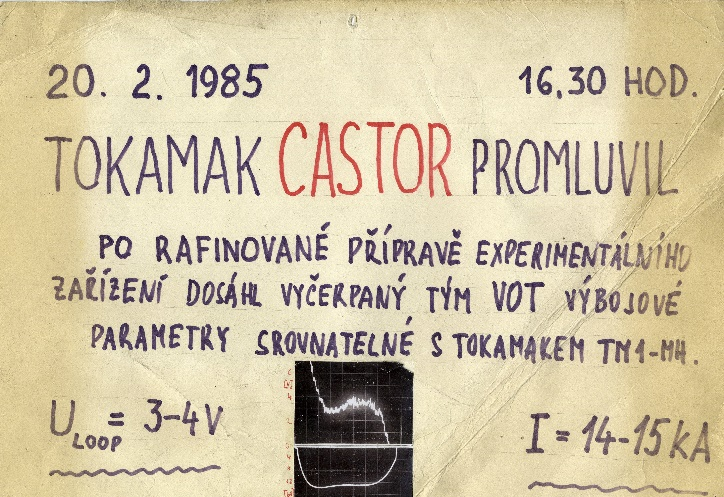 20. 2. 1985 16,30 HOD.
TOKAMAK CASTOR PROMLUVIL
PO RAFINOVANÉ PŘÍPRAVĚ EXPERIMENTÁLNÍHO
ZAŘÍZENÍ DOSÁHL VYČERPANÝ TÝM VOT VÝBOJOVÉ
PARAMETRY SROVNATELNÉ S TOKAMAKEM TM1-MH.
U LOOP = 3-4V I = 14-15 kA